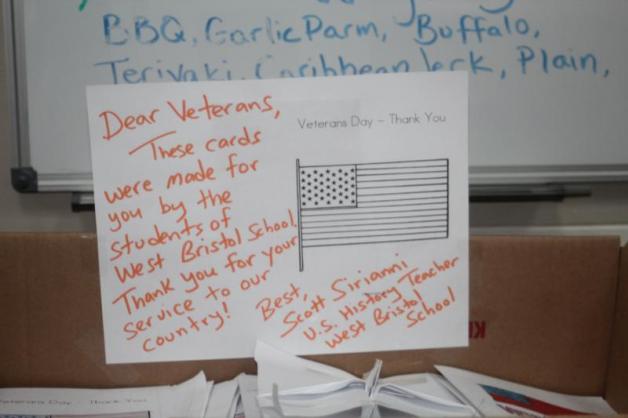 BBQ, Garlic Parm, Buffalo,
Teriyaki, Caribbean Jerk, Plain,
Dear Veterans,
These cards
were made for
you by the
students of
West Bristol School.
Thank you for your
service to our
country!
Veterans Day – Thank You
Best,
Scott Sirianni
U.S. History Teacher
West Bristol
School
Veterans Day - Thank You